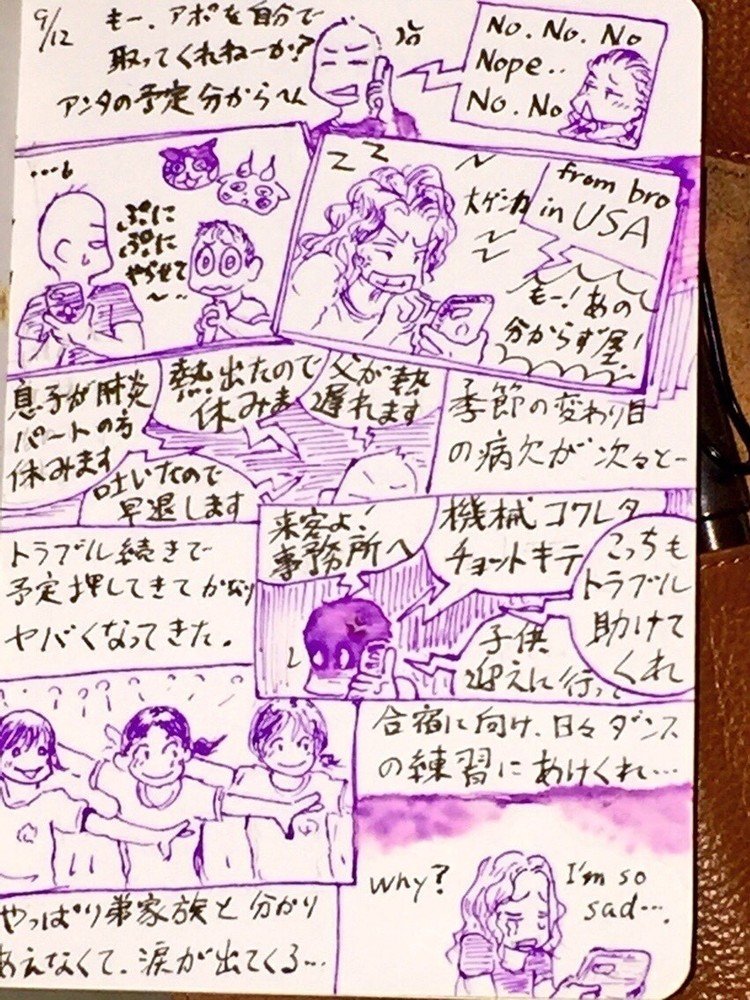 9/12
もー、アポを自分で
取ってくれねーか?
アンタの予定分からへん
No. No. No
Nope..
No. No
...
ぷに
ぷに
やらせて
〜..
ZZ
大ゲンカ
from bro
in USA
もー!あの
分からず屋!
息子が肺炎
パートの方
休みます
熱出たので
休みま
父が熱
遅れます
吐いたので
早退します
季節の変わり目
の病欠が次々と-
トラブル続きで
予定押してきてかなり
ヤバくなってきた。
来客よ!
事務所へ
機械コワレタ
チョットキテ
こっちも
トラブル
助けて
くれ
子供
迎えに行って
合宿に向け、日々ダンス
の練習にあけくれ...
やっぱり弟家族と分かり
あえなくて、涙が出てくる...
why?
I'm so
sad....